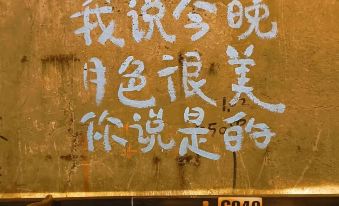 我说今晚
月色很美
你说是的